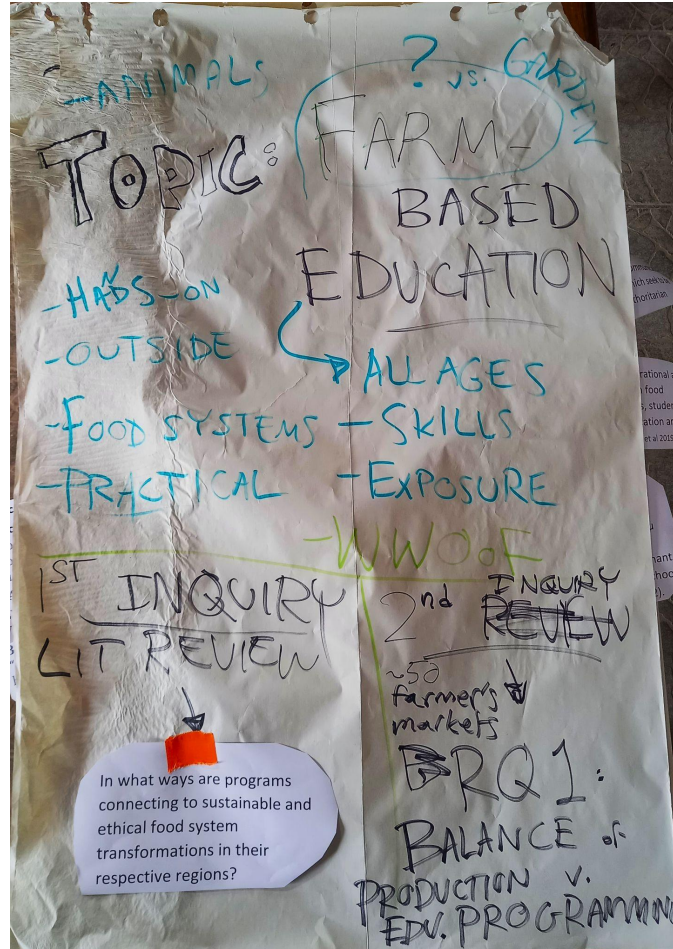 -ANIMALS
? vs. GARDEN
TOPIC: FARM-
BASED
EDUCATION
-HANDS-ON
-OUTSIDE
-FOOD SYSTEMS
-PRACTICAL
ALL AGES
-SKILLS
-EXPOSURE
-WWOOF
1ST INQUIRY
LIT REVIEW
In what ways are programs
connecting to sustainable and
ethical food system
transformations in their
respective regions?
2nd INQUIRY
REVIEW
~50
farmer's
markets
RQ1:
BALANCE of
PRODUCTION v.
EDU. PROGRAMMING
ich seek to
choritarian
rational
food
s, studen
ation an
et al 2019
hant
choo
).